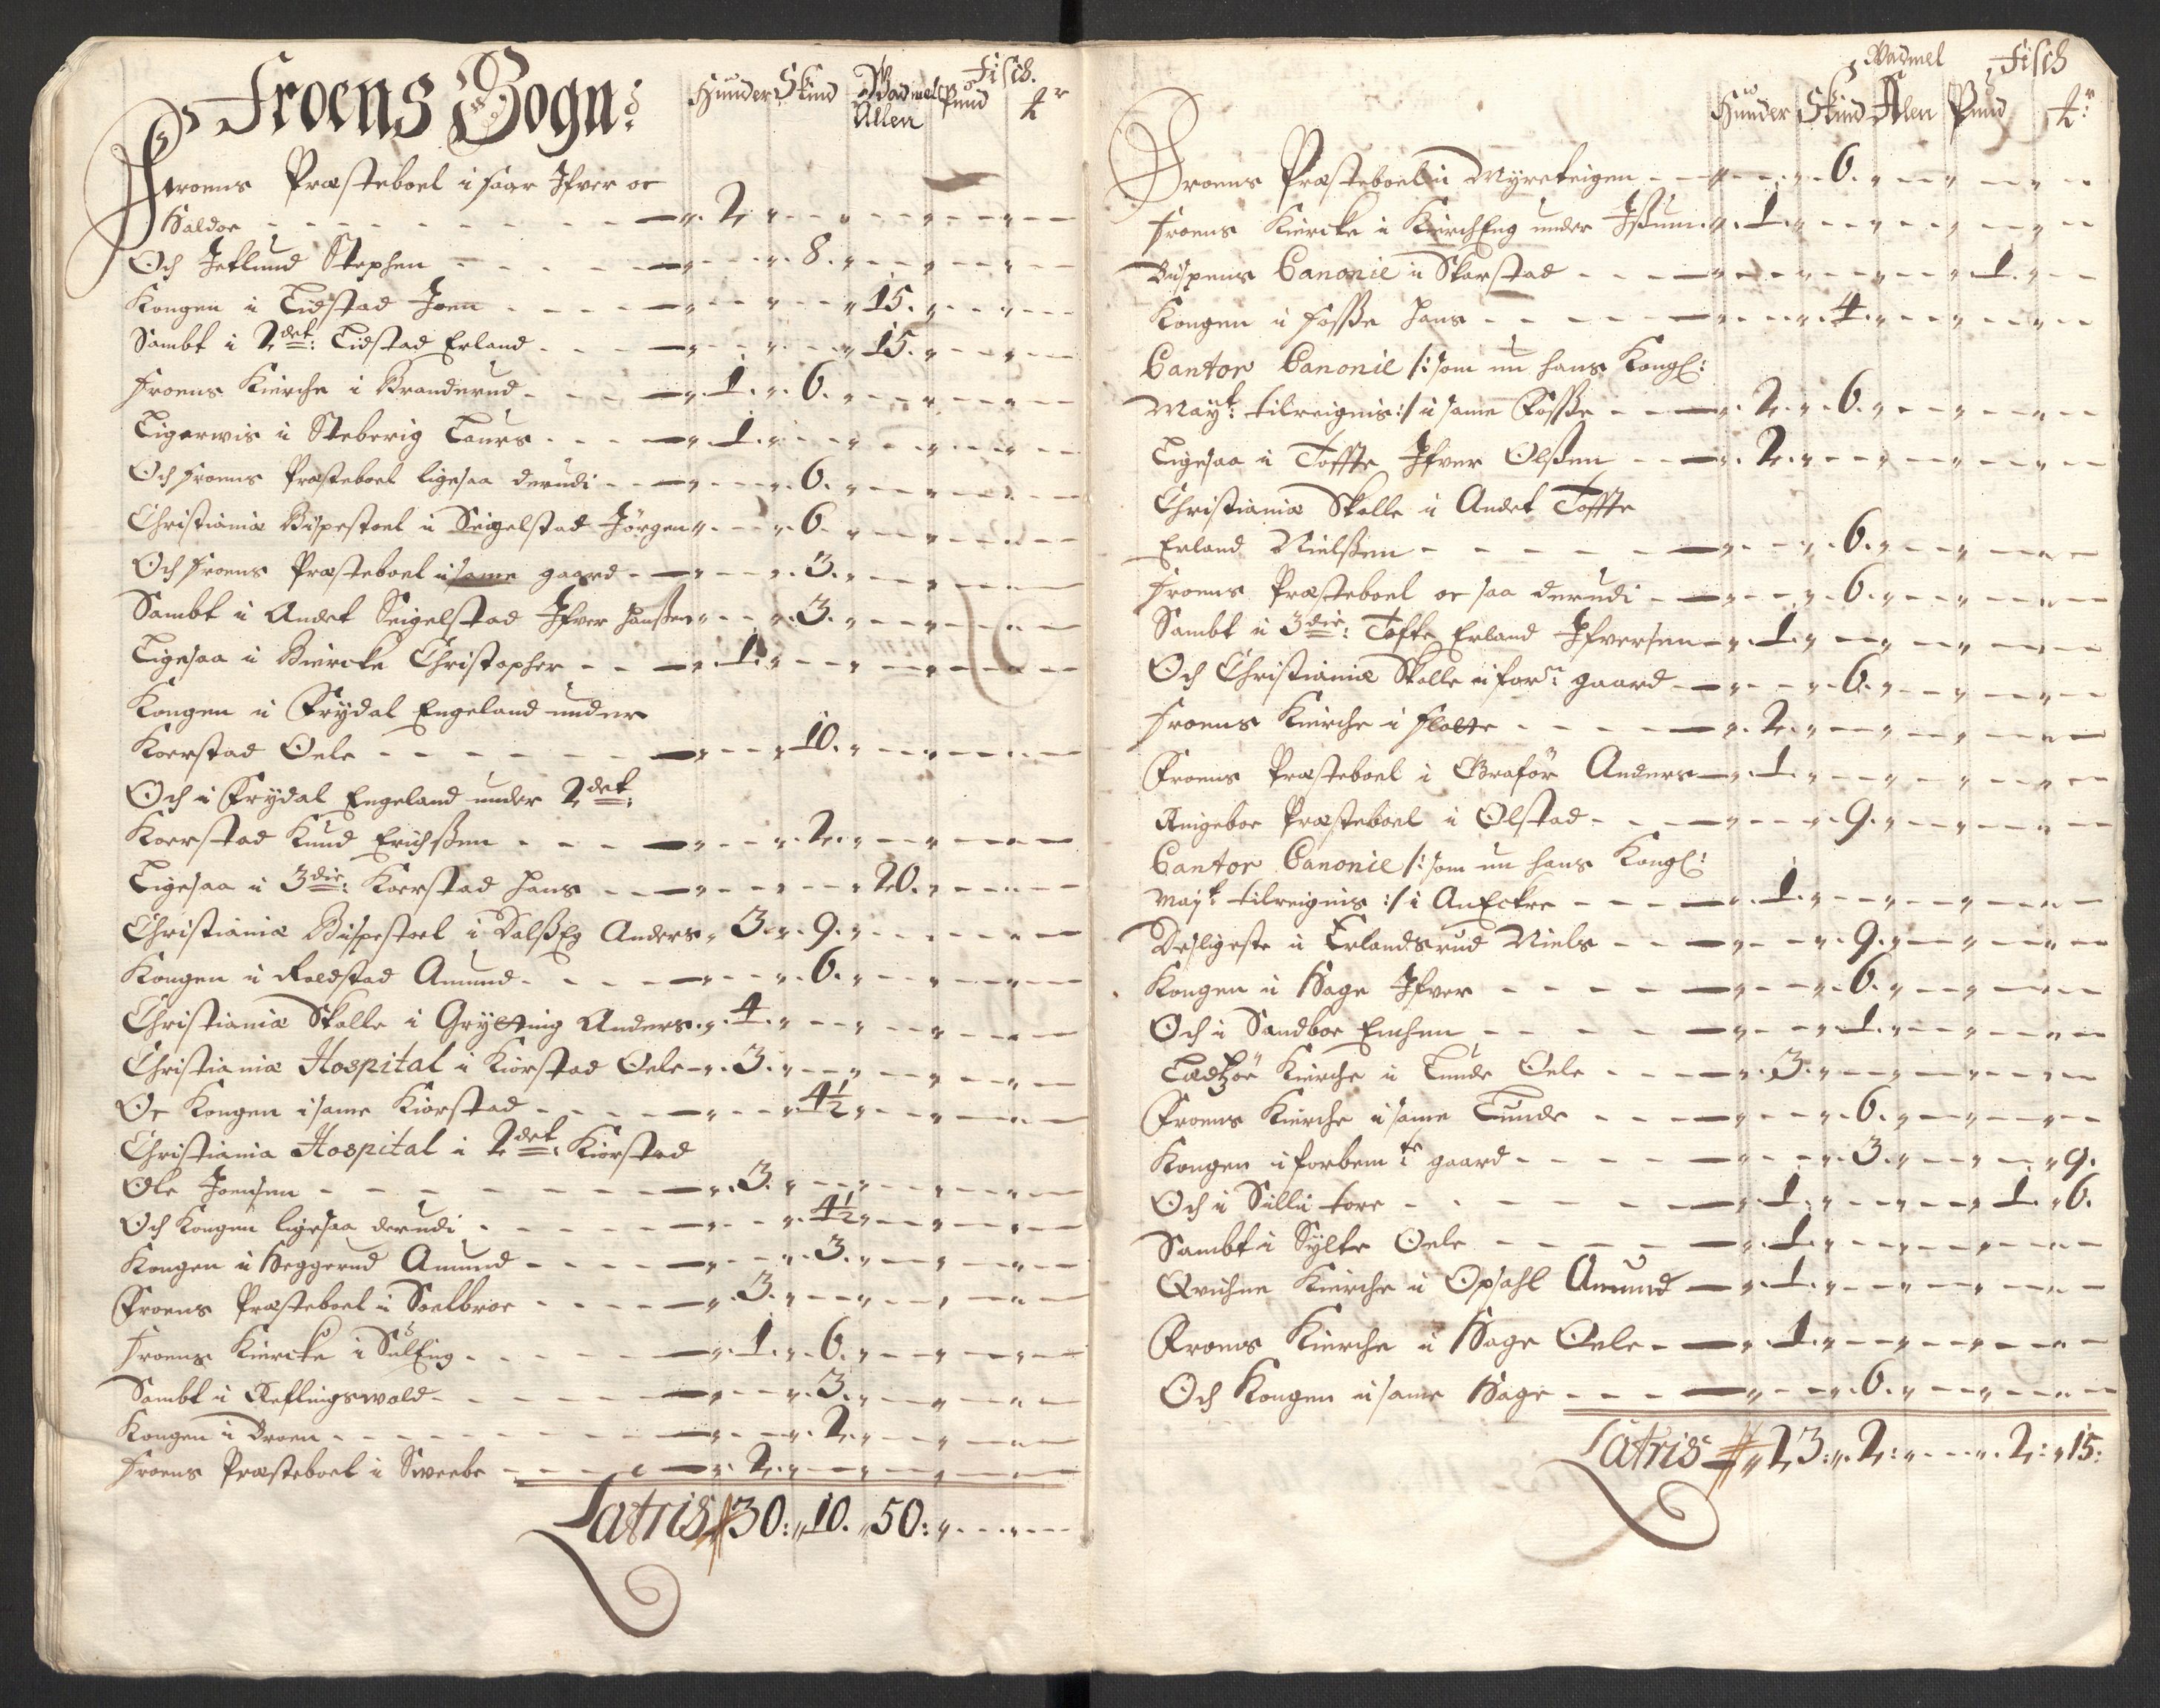 Froens Sogn:
Hunder Skind Wadmel Allen Fisch. Pund ℔r
Froens Præsteboel i faar Ifver oc
Haldor - - - „ 2 „ - - „ - - „ - - „ - -
Och Jetlund Stephen - - - „ - - „ 8. „ - - „ - - „ - -
Kongen i Tidstad Joen - - - „ - - „ - - „ 15. „ - - „ - -
Sambt i 2det: Tidstad Erland - - - „ - - „ - - „ 15. „ - - „ - -
Froens Kierche i Branderud - - - „ 1. „ 6. „ - - „ - - „ - -
Ligerwis i Steberig Laurs - - - „ 1. „ - - „ - - „ - - „ - -
Och Froens Præsteboel ligesaa derudi - - - „ - - „ 6. „ - - „ - - „ - -
Christianiæ Bispestoel i Seigelstad Jörgen „ - - „ 6. „ - - „ - - „ - -
Och Froens Præsteboel i same gaard - - „ - - „ 3. „ - - „ - - „ - -
Sambt i Andet Seigelstad Ifver Hanßen „ - - „ 3. „ - - „ - - „ - -
Ligesaa i Biercke Christopher - - „ 1. „ - - „ - - „ - - „ - -
Kongen i Frydal Engeland under
Koerstad Oele - - - „ - - „ 10. „ - - „ - - „ - -
Och i Frydal Engeland under 2det:
Koerstad Knud Erichßen - - - „ - - „ 2. „ - - „ - - „ - -
Ligesaa i 3die: Koerstad Hans - - - „ - - „ - - „ 20. „ - - „ - -
Christianiæ Bispestoel i Dalßeg Anders „ 3. „ 9. „ - - „ - - „ - -
Kongen i Roldstad Amund - - - „ - - „ 6. „ - - „ - - „ - -
Christianiæ Skolle i Grytting Anders „ 4. „ - - „ - - „ - - „ - -
Christianiæ Hospital i Kiorstad Oele - „ 3. „ - - „ - - „ - - „ - -
Oc Kongen i same Kiorstad - - - „ - - „ 4½ „ - - „ - - „ - -
Christiania Hospital i 2det: Kiorstad
Ole Joensen - - - „ 3. „ - - „ - - „ - - „ - -
Och Kongen ligesaa derudi - - - „ - - „ 4½ „ - - „ - - „ - -
Kongen i Heggerud Amund - - - „ - - „ 3. „ - - „ - - „ - -
Froens Præsteboel i Soelbroe - - - „ 3. „ - - „ - - „ - - „ - -
Froens Kiercke i SulEng - - - „ 1. „ 6. „ - - „ - - „ - -
Sambt i Reflingswold - - - „ - - „ 3. „ - - „ - - „ - -
Kongen i Broen - - - „ - - „ 2. „ - - „ - - „ - -
Froens Præsteboel i Sweebe - - - „ 2. „ - - „ - - „ - - „ - -
Latris „ 30: „ 10. „ 50: „ - - „ - -
Hunder Skind Wadmel Alen Fisch Pund ℔r:
Froens Præsteboel i Myreteigen - - „ - - „ 6. „ - - „ - - „ - -
Froens Kiercke i KierchEng under Ißum „ 1. „ - - „ - - „ - - „ - -
Bispens Canonie i Skarstad - - - „ - - „ - - „ - - „ 1. „ - -
Kongen i Fosße Hans - - - „ - - „ 4. „ - - „ - - „ - -
Cantor Canonie /: som nu hans Kongl:
Mayt: tilreignis :/ i same Fosße - - - „ 2. „ 6. „ - - „ - - „ - -
Ligesaa i Toffte Ifver Olßen - - - „ 2. „ - - „ - - „ - - „ - -
Christianiæ Skolle i Andet Toffte
Erland Nielßen - - - „ - - „ 6. „ - - „ - - „ - -
Froens Præsteboel oc saa derudi - - „ - - „ 6. „ - - „ - - „ - -
Sambt i 3die: Tofte Erland Ifversen - „ 1. „ - - „ - - „ - - „ - -
Och Christianiæ Skolle i forn: gaard - „ - - „ 6. „ - - „ - - „ - -
Froens Kierche i Flotte - - - „ 2. „ - - „ - - „ - - „ - -
Froens Præsteboel i Graför Anders - „ 1. „ - - „ - - „ - - „ - -
Ringeboe Præsteboel i Olstad - - - „ - - „ 9. „ - - „ - - „ - -
Cantor Canonie /: som nu hans Kongl:
Mayt: tilreignis :/ i AnEckre - - - „ 1. „ - - „ - - „ - - „ - -
Desligeste i Erlandsrud Niels - - - „ - - „ 9. „ - - „ - - „ - -
Kongen i Hage Ifver - - - „ - - „ 6. „ - - „ - - „ - -
Och i Sandboe Enchen - - - „ - - „ 1. „ - - „ - - „ - -
Kierche i Lunde Oele - - - „ 3. „ - - „ - - „ - - „ - -
Froens Kierche i same Lunde - - - „ - - „ 6. „ - - „ - - „ - -
Kongen i forbemte: gaard - - - „ - - „ 3. „ - - „ - - „ 9.
Och i Silli tore - - - „ 1. „ - - „ - - „ 1. „ 6.
Sambt i Sylte Oele - - - „ 1. „ - - „ - - „ - - „ - -
Qvichne Kierche i Opsahl Amund - „ 1. „ - - „ - - „ - - „ - -
Froens Kierche i Hage Oele - - „ 1. „ - - „ - - „ - - „ - -
Och Kongen i same Hage - - - „ - - „ 6. „ - - „ - - „ - -
Latris „ 23: „ 2: „ - - „ 2: „ 15: